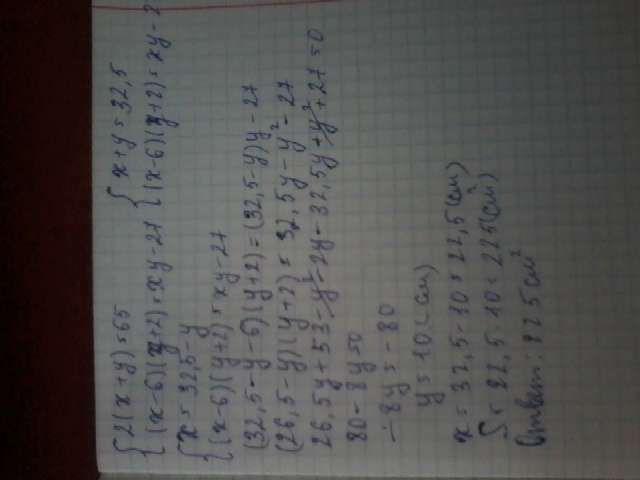 { 2(x+y)=65 { x+y=32,5
{ (x-6)(y+2)=xy-27 { (x-6)(y+2)=xy-2
{ x=32,5-y
{ (x-6)(y+2)=xy-27
(32,5-y-6)(y+2)=(32,5-y)y-27
(26,5-y)(y+2)=32,5y-y²-27
26,5y+53-y²-2y-32,5y+y²+27=0
80-8y=0
-8y=-80
y=10(см)
x=32,5-10=22,5(см)
S=22,5·10=225(см²)
Ответ: 225см²